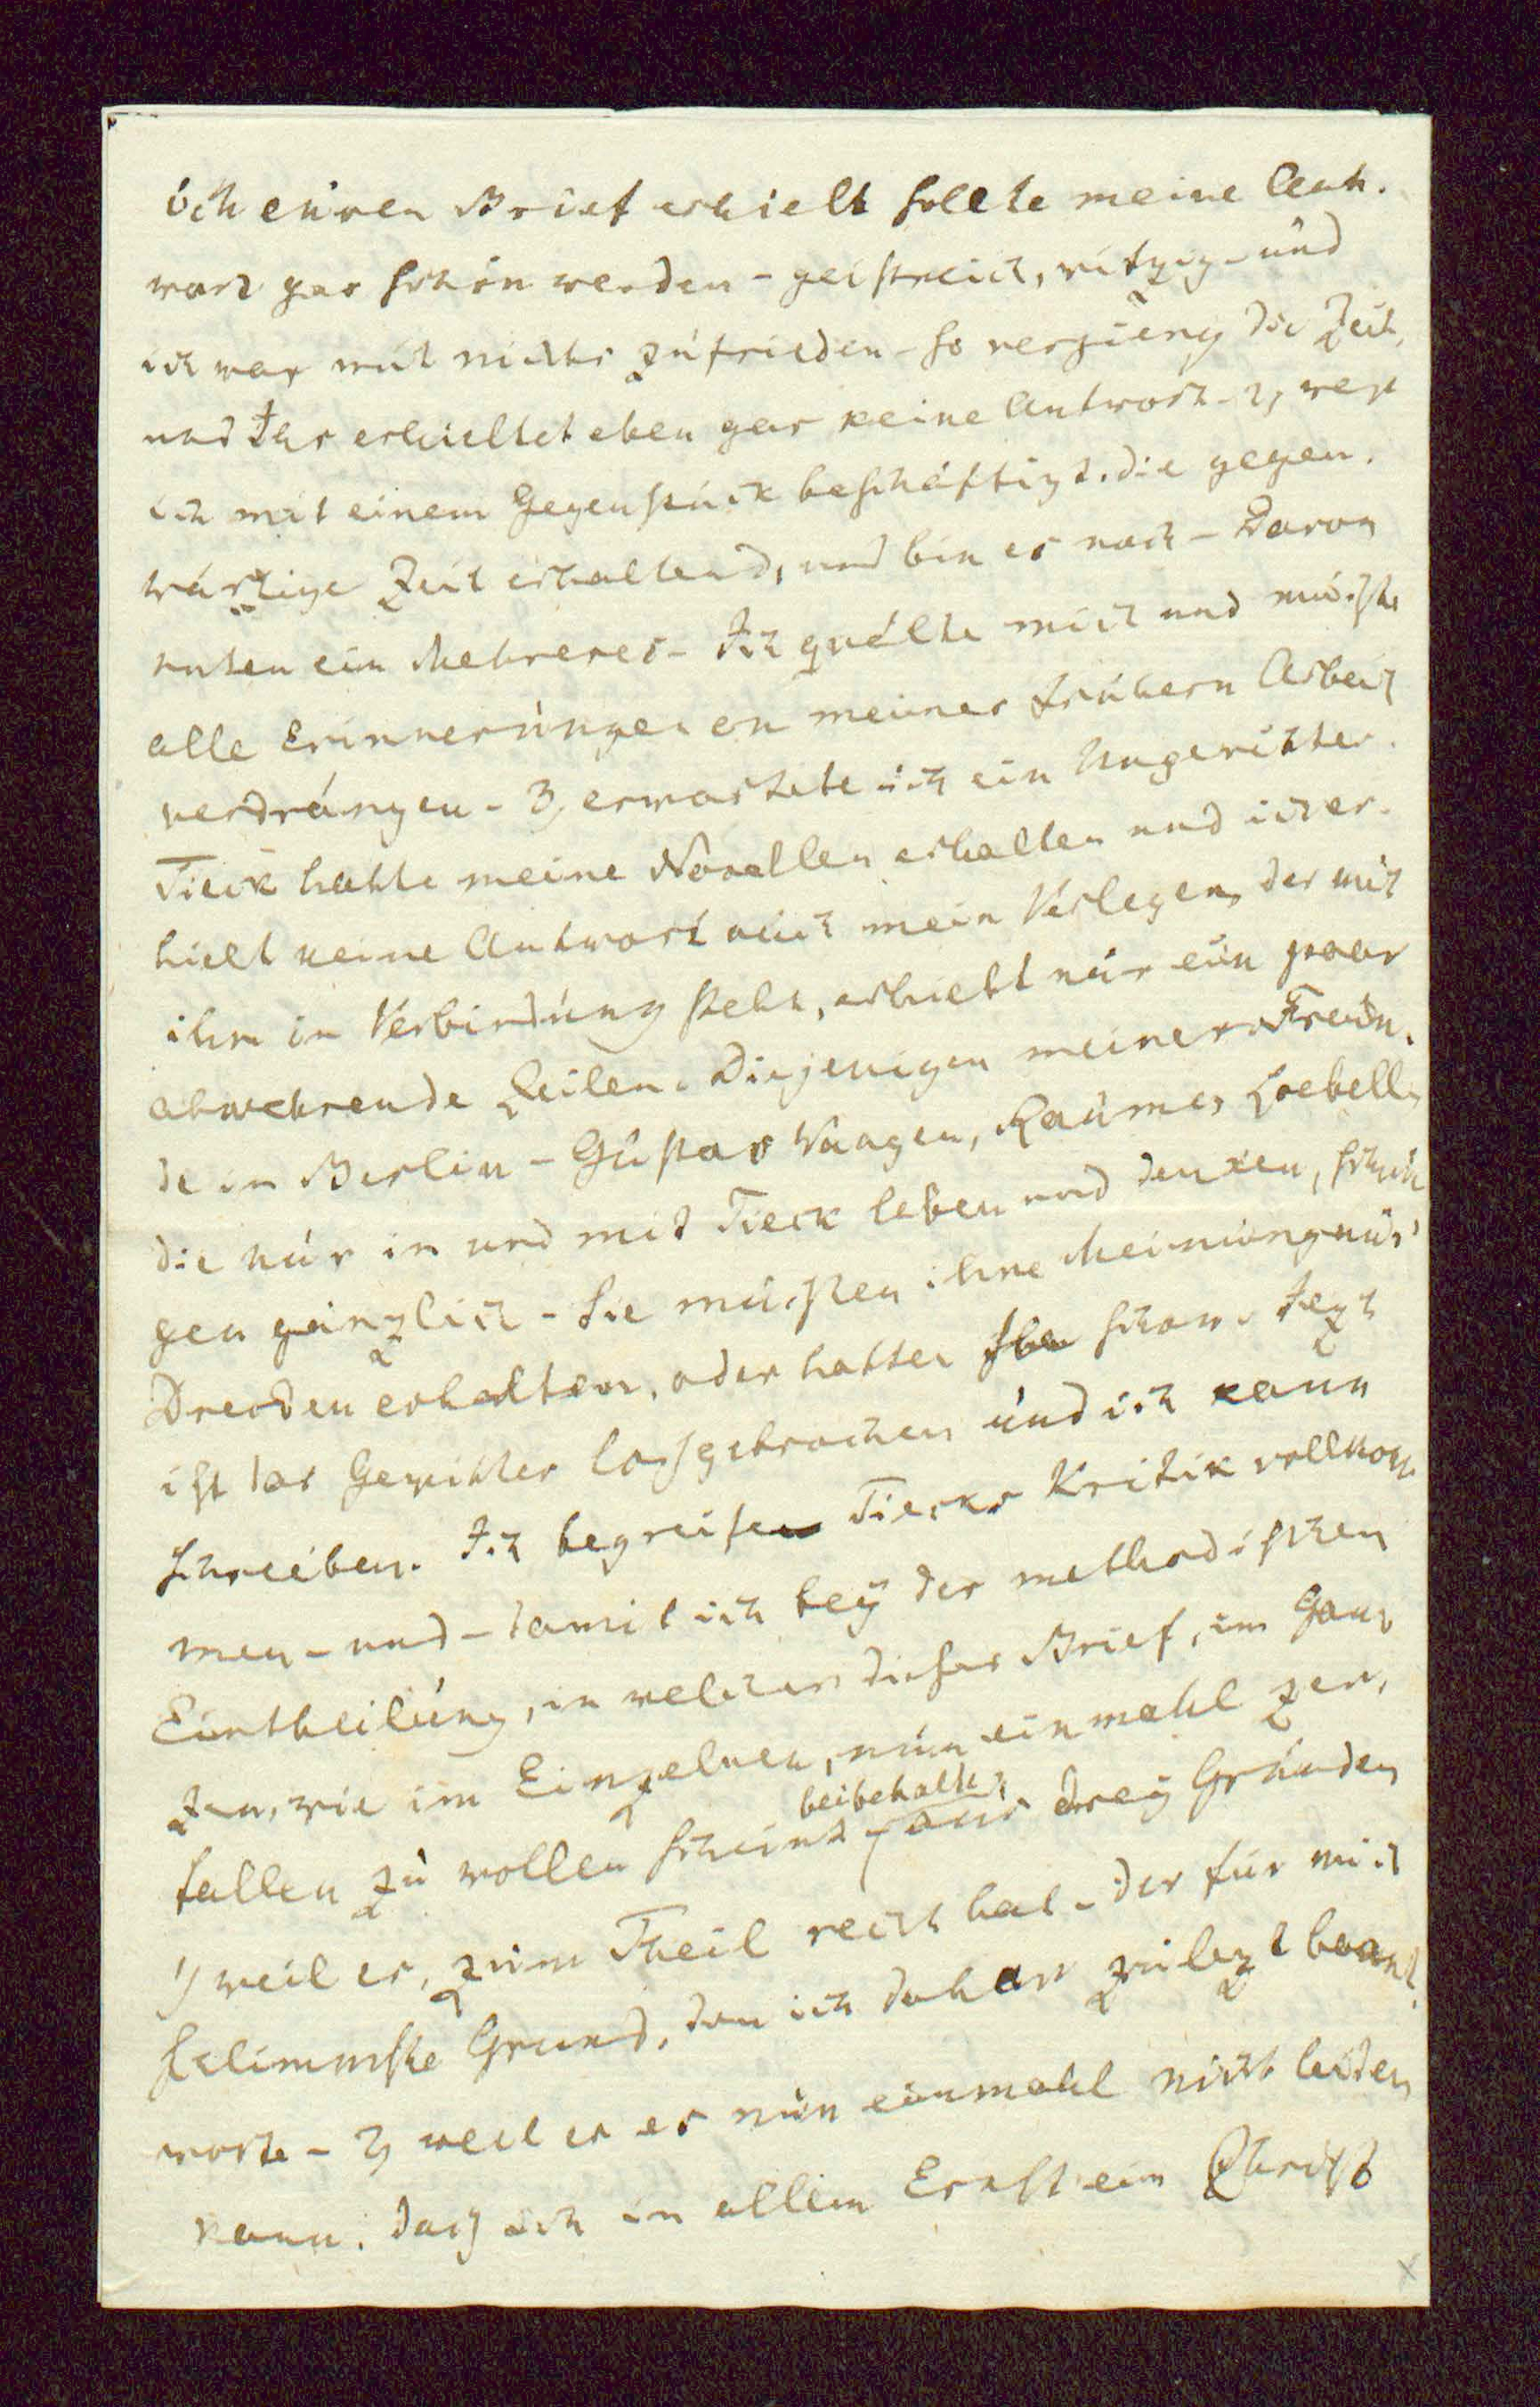 ich euren Brief erhielt sollte meine Ant-
wort gar schön werden - geistreich, witzig - und
ich war mit nichts zufrieden - so vergieng die Zeit,
und Ihr erhieltet eben gar keine Antwort - 2, war
ich mit einem Gegenstück beschäftigt. die gegen-
wärtige Zeit enthaltend, und bin es noch - Davon
unten ein Mehreres - Ich quälte mich und mußte
alle Erinnerungen an meiner frühern Arbeit
verdrängen - 3, erwartete ich ein Ungewitter.
Tieck hatte meine Novellen erhalten und ich er-
hielt keine Antwort auch mein Verleger, der mit
ihm in Verbindung steht, erhielt nur ein paar
abwehrende Zeilen. Diejenigen meiner Freun-
de in Berlin - Gustav Waagen, Raumer Loebell,
die nur in und mit Tieck leben und denken, schwie
gen gänzlich - Sie mußten ihre Meinung aus
Dresden erhalten, oder hatten schon. Jezt
ist das Gewitter losgebrochen und ich kann
schreiben. Ich begreife Tiecks Kritik vollkom-
men - und - damit ich bey der methodischen
Eintheilung, in welcher dieser Brief, im Gan-
zen, wie im Einzelnen, nun einmahl zer-
fallen zu wollen scheint beibehalte, aus drey Gründen
1, weil er, zum Theil recht hat - der für mich
schlimmste Grund, den ich daher zulezt beant-
worte - 2, weil er es nun einmahl nicht leiden
kann, daß ich in allem Ernst ein Christ